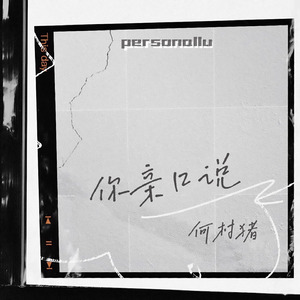 personally
This day
你亲口说
何村猪